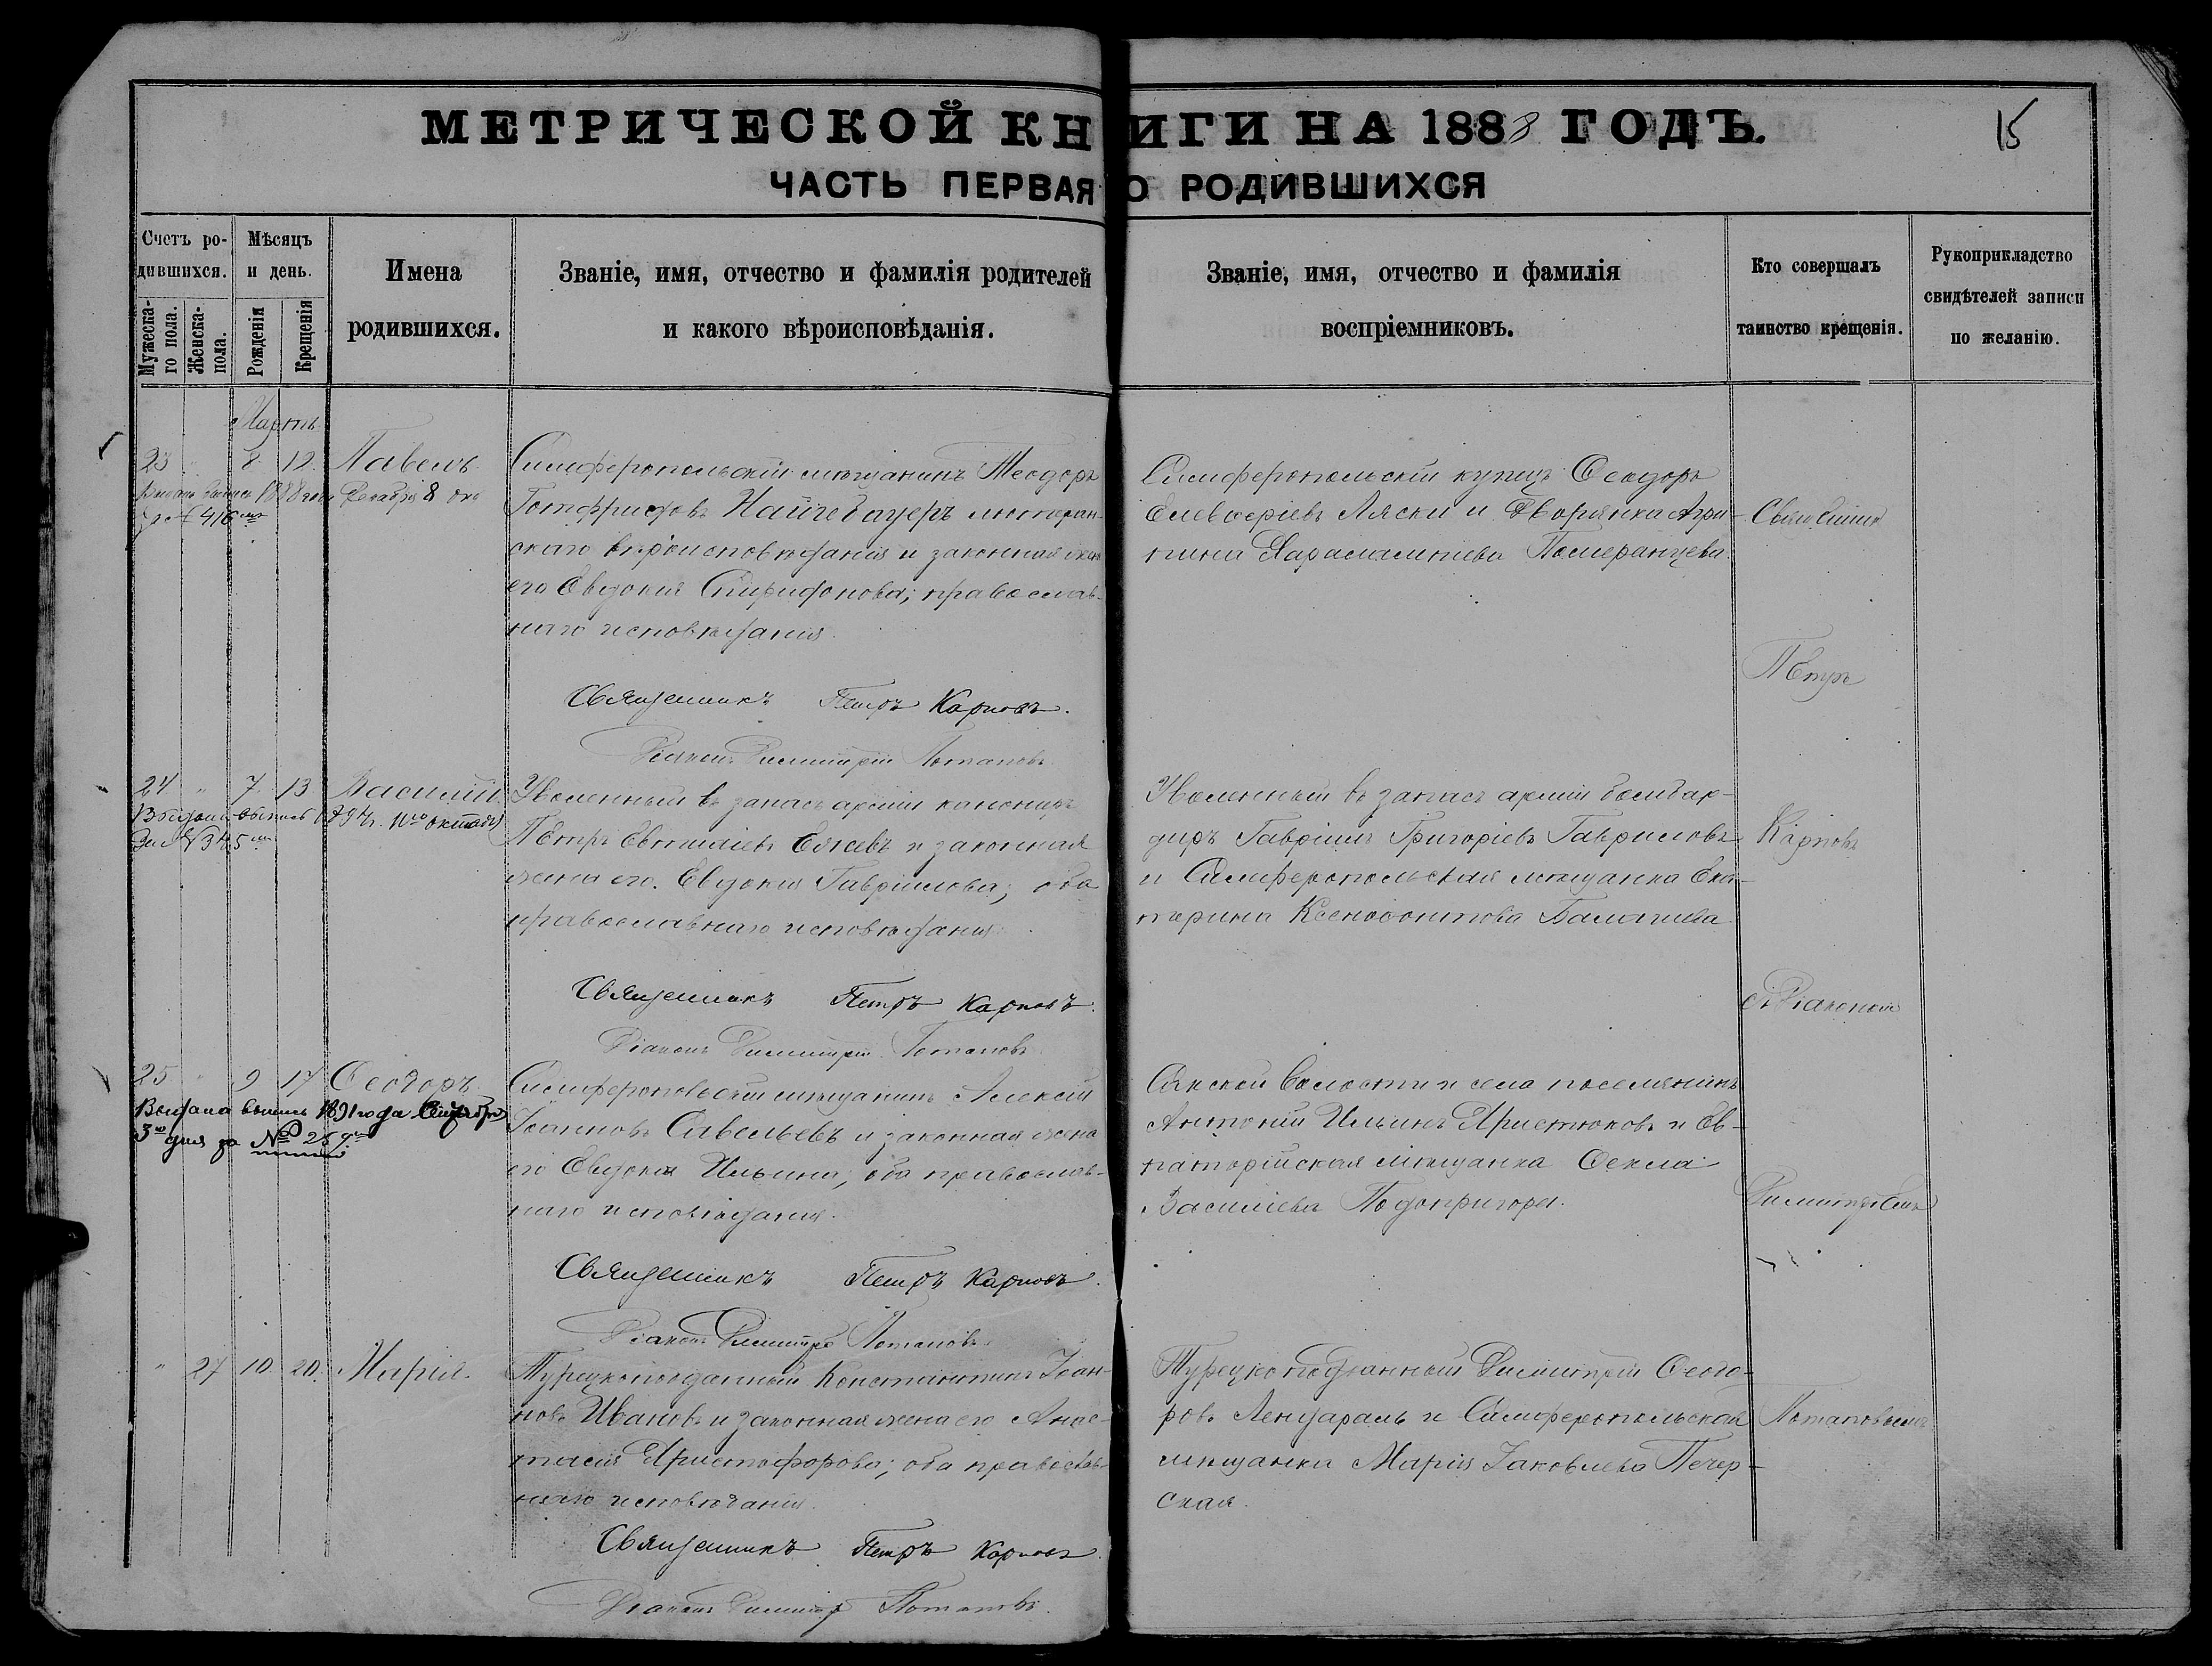 МЕТРИЧЕСКОЙ КНИГИ НА 1888 ГОДЪ.
15
ЧАСТЬ ПЕРВАЯ О РОДИВШИХСЯ
Счетъ ро-
дившихся.
Мужеска-
го пола.
Женска-
пола.
Мѣсяцъ
и день.
Рожденія
Крещенія
Имена
родившихся.
Званіе, имя, отчество и фамилія родителей
и какого вѣроисповѣданія.
Званіе, имя, отчество и фамилія
воспріемниковъ.
Кто совершалъ
таинство крещенія.
Рукоприкладство
свидѣтелей записи
по желанію.
Мартъ
23 " 8. 12. Павелъ.
выпись 1888 года Декабря 8 дня
за № 416
Симферопольскій мѣщанинъ Теодоръ
Готфридовъ Найгебауеръ лютеран-
скаго вѣроисповѣданія и законная жена
его Евдокія Спиридонова; православ-
наго исповѣданія.
Священникъ Петръ Карповъ.
Діаконъ Димитрій Потаповъ.
Симферопольскій купецъ Ѳеодоръ
Елевѳеріевъ Ляски и Дворянка Агри-
пина Харалампіева Померанцева.
Священникъ
Петръ
24 " 7. 13 Василій.
Выдана выпись 1894 г. октября
За № 345
Уволенный въ запасъ арміи канониръ
Петръ Евѳиміевъ и законная
жена его. Евдокія Гавріилова; оба
православнаго исповѣданія.
Священникъ Петръ Карповъ.
Діаконъ Димитрій Потаповъ.
Уволенный въ запасъ арміи бомбар-
диръ Гавріилъ Григоріевъ Гавриловъ
и Симферопольская мѣщанка Ека-
терина Ксенофонтова
Карповъ
съ Діакономъ
25 " 9 17 Ѳеодоръ.
Выдана выпись 1891 года
3го дня за № 259
Симферопольскій мѣщанинъ Алексій
Іоанновъ Савельевъ и законная жена
его Евдокія Ильина; оба православ-
наго исповѣданія.
Священникъ Петръ Карповъ.
Діаконъ Димитрій Потаповъ.
Сакской волости и села поселянинъ
Антоній Ильинъ Христюковъ и Ев-
паторійская мѣщанка Ѳекла
Василіева Подопригора.
Димитріемъ
" 27 10. 20. Марія.
Турецкоподданный Константинъ Іоан-
новъ Ивановъ и законная жена его Анас-
тасія Христофорова; оба православ-
наго исповѣданія.
Священникъ Петръ Карповъ.
Діаконъ Димитрій Потаповъ.
Турецкоподданный Димитрій Ѳеодо-
ровъ и Симферопольская
мѣщанка Марія Іаковлева Печер-
ская.
Потаповымъ